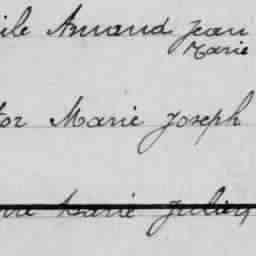 ile Amand Jean
Marie
tor Marie Joseph
rre Marie Julien